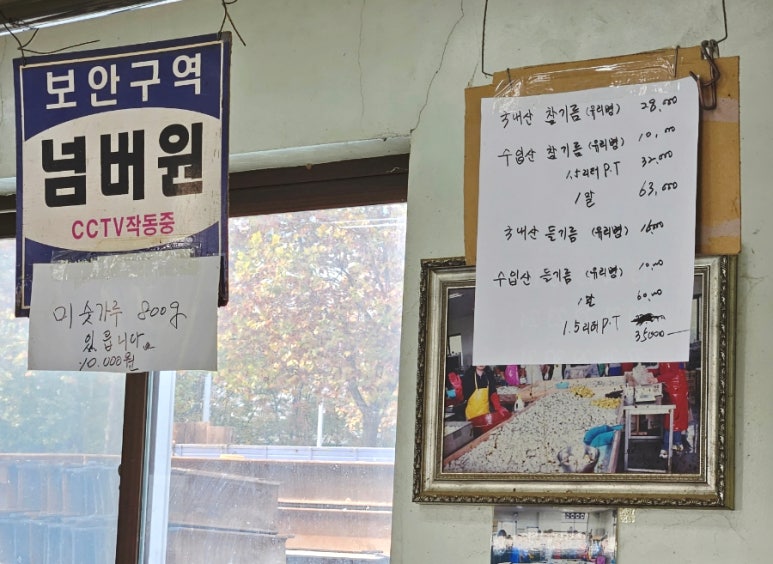 보안구역
넘버원
CCTV작동중
미숫가루 800g
있읍니다
10.000원
국내산 참기름 (유리병) 28,000
수입산 참기름 (유리병) 10,000
1.5리터 P.T 32,000
1말 63,000
국내산 들기름 (유리병) 16000
수입산 들기름 (유리병) 10,000
1말 60,000
1.5리터 P.T 35000